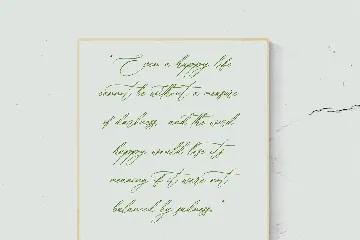 "Even a happy life
cannot be without a measure
of darkness, and the word
happy would lose its
meaning if it were not
balanced by sadness."